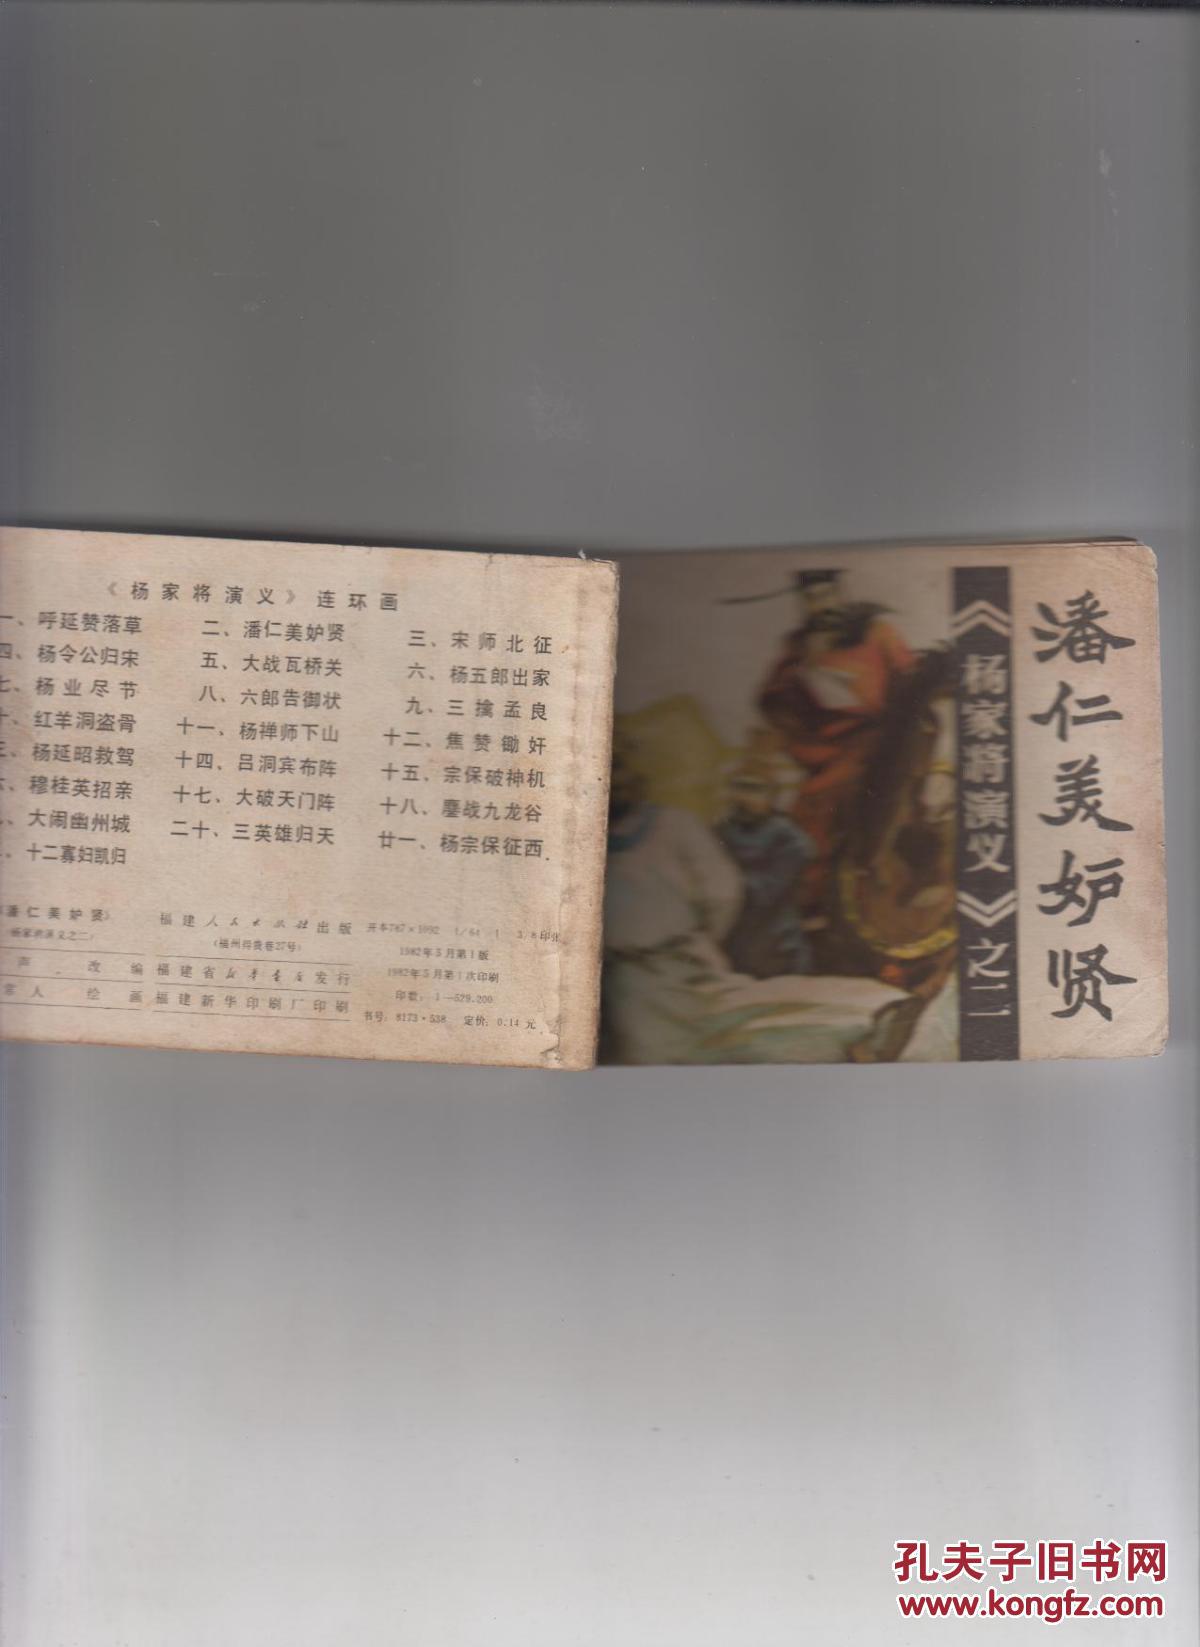 《杨家将演义》连环画
一、呼延赞落草 二、潘仁美妒贤 三、宋师北征
四、杨令公归宋 五、大战瓦桥关 六、杨五郎出家
七、杨业尽节 八、六郎告御状 九、三擒孟良
十、红羊洞盗骨 十一、杨禅师下山 十二、焦赞锄奸
三、杨延昭救驾 十四、吕洞宾布阵 十五、宗保破神机
六、穆桂英招亲 十七、大破天门阵 十八、鏖战九龙谷
、大闹幽州城 二十、三英雄归天 廿一、杨宗保征西
、十二寡妇凯归
潘仁美妒贤》
(杨家将演义之二)
声 改编
常人 绘画
福建人民出版社出版
(福州得贵巷27号)
福建省新华书店发行
福建新华印刷厂印刷
开本787×1092 1/64 1 3/8印张
1982年5月第1版
1982年5月第1次印刷
印数：1—529.200
书号：8173·538 定价：0.14元
潘仁美妒贤
《杨家将演义》之二
孔夫子旧书网
www.kongfz.com